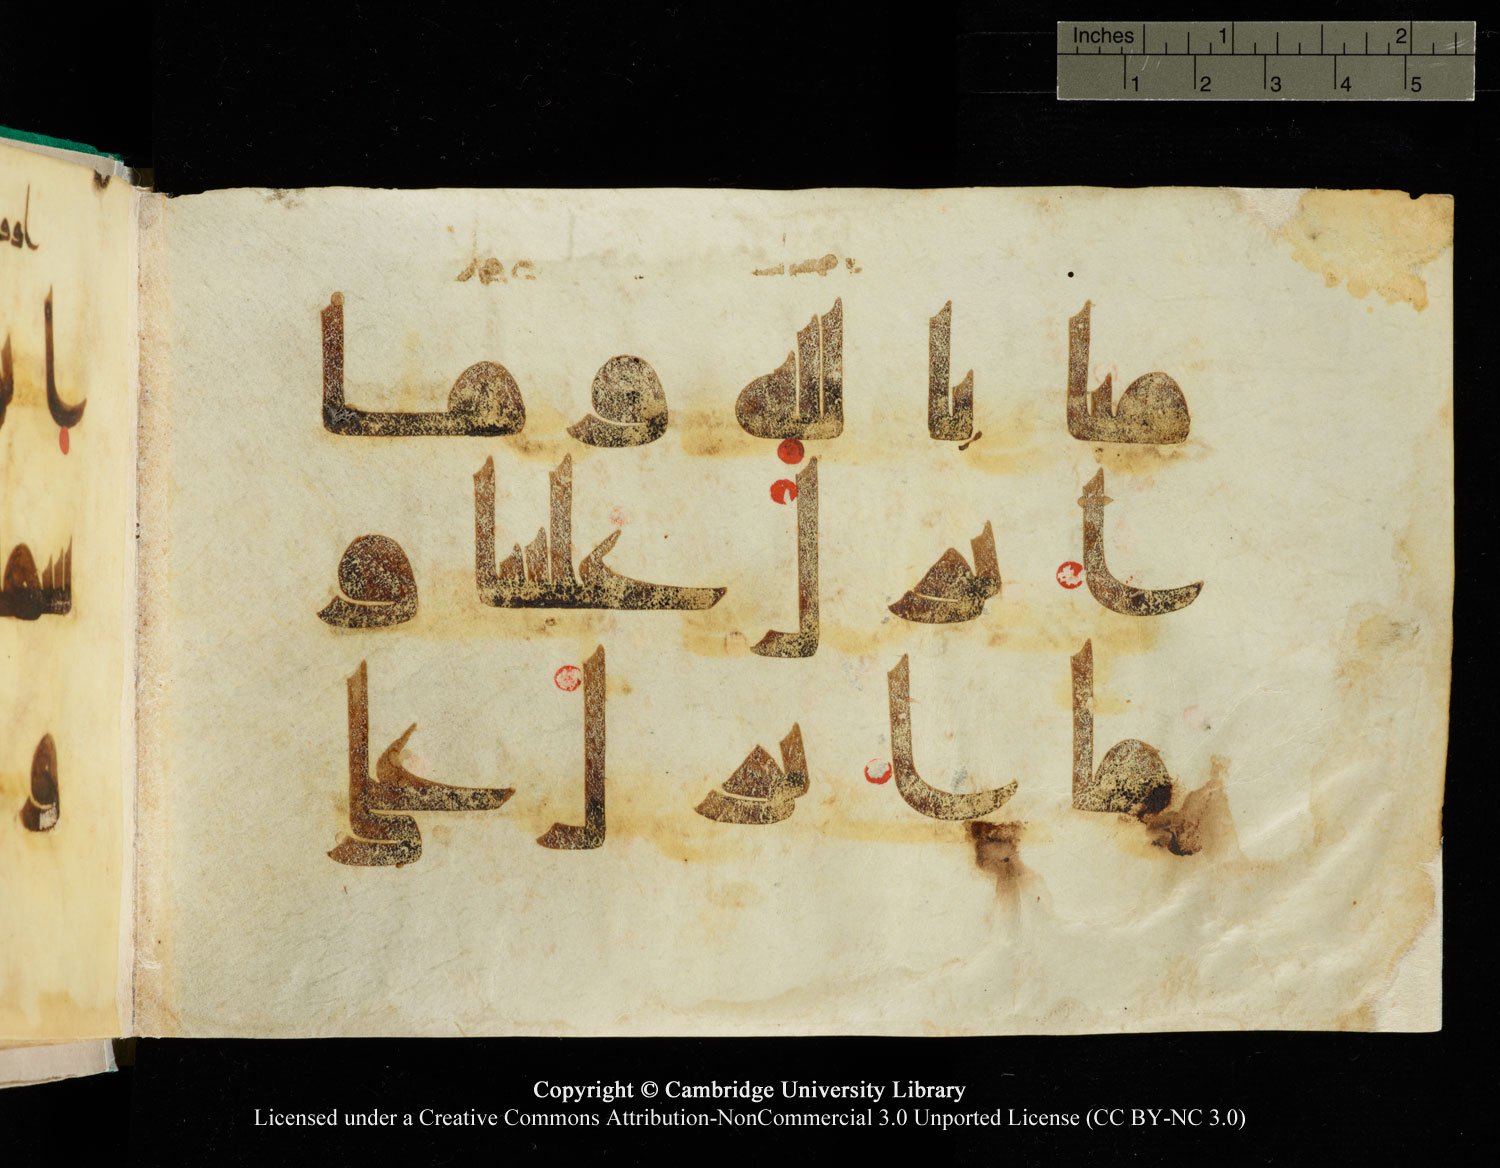 Inches 1 2
1 2 3 4 5
منا بالله وما
انزل علينا و
ما انزل على
Copyright © Cambridge University Library
Licensed under a Creative Commons Attribution-NonCommercial 3.0 Unported License (CC BY-NC 3.0)